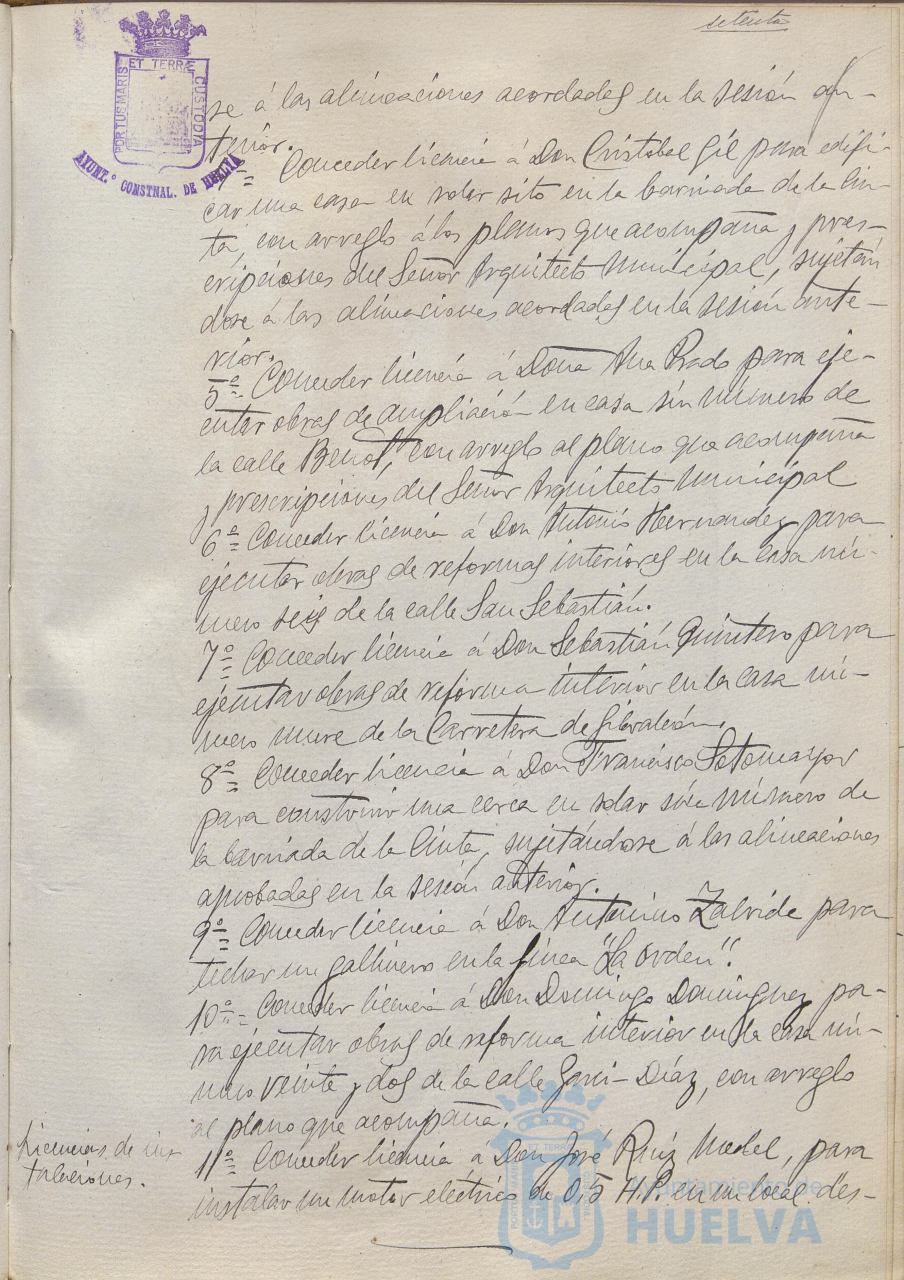 setenta
PORTUS MARIS ET TERRÆ CUSTODIA
AYUNT.º CONSTNAL. DE HUELVA
se á las alineaciones acordadas en la sesión an-
terior.
Conceder licencia á Don Cristobal Gil para edifi-
car una casa en solar sito en la barriada de la Cin-
ta, con arreglo á los planos que acompaña y pres-
cripciones del Señor Arquitecto Municipal, sujetán
dose á las alineaciones acordadas en la sesión ante-
rior.
5º = Conceder licencia á Doña Ana Prado para eje-
cutar obras de ampliación en casa sin número de
la calle Benot, con arreglo al plano que acompaña
y prescripciones del Señor Arquitecto Municipal
6º = Conceder licencia á Don Antonio Hernandez para
ejecutar obras de reformas interiores en la casa nú-
mero seis de la calle San Sebastián.
7º = Conceder licencia á Don Sebastián Quintero para
ejecutar obras de reforma interior en la casa nú-
mero nueve de la Carretera de Gibraleón.
8º = Conceder licencia á Don Francisco Sotomayor
para construir una cerca en solar sin número de
la barriada de la Cinta, sujetándose á las alineaciones
aprobadas en la sesión anterior.
9º = Conceder licencia á Don Antonino Zalvide para
techar un gallinero en la finca "La Orden".
10º = Conceder licencia á Don Domingo Dominguez pa-
ra ejecutar obras de reforma interior en la casa nú-
mero veinte y dos de la calle Garci-Díaz, con arreglo
al plano que acompaña.
Licencias de ins
talaciones.
11º = Conceder licencia á Don José Ruiz Medel, para
instalar un motor electrico de 0,5 H.P. en un local des-
Ayuntamiento de
HUELVA